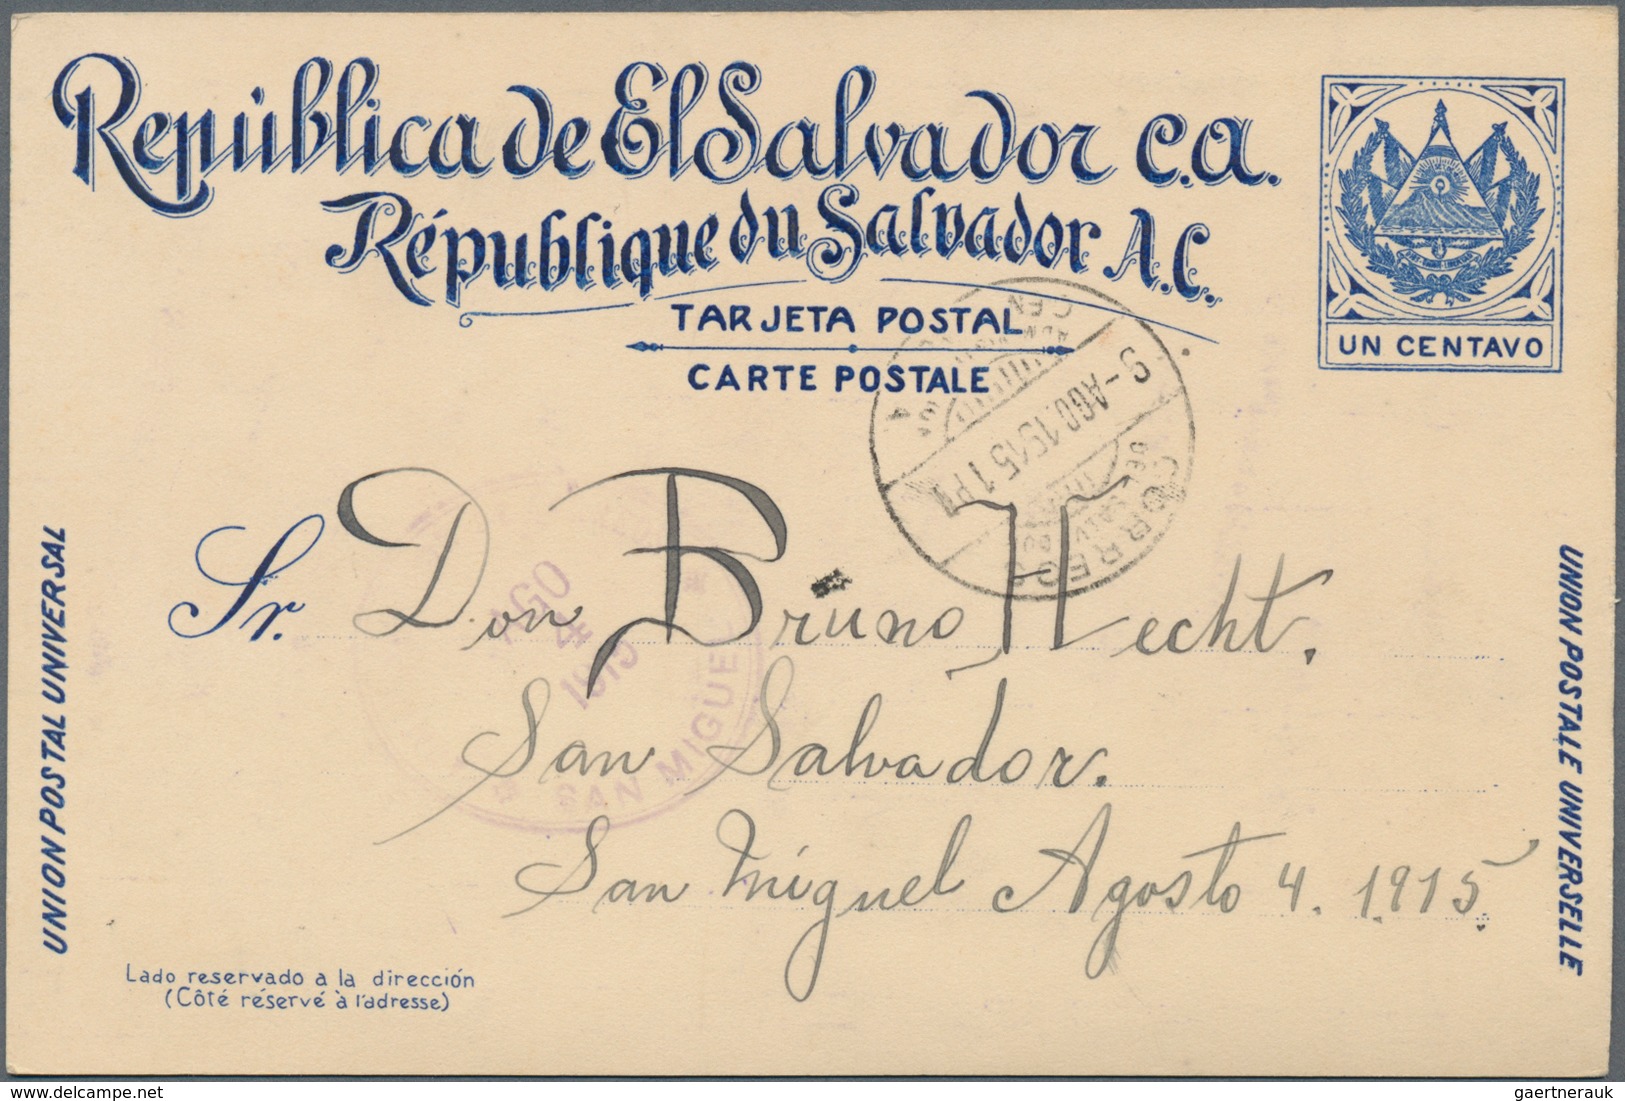 República de El Salvador C.A.
République du Salvador A.C.
TARJETA POSTAL
CARTE POSTALE
UN CENTAVO
9-AGO.1915 1 PM
CORREOS
DEL SALVADOR
UNION POSTAL UNIVERSAL
Sr. Don Bruno Hecht.
AGO
4
1915
SAN MIGUEL
San Salvador.
San Miguel Agosto 4. 1.915.
UNION POSTALE UNIVERSELLE
Lado reservado a la dirección
(Côté réservé à l'adresse)
www.delcampe.net
gaertnerauk